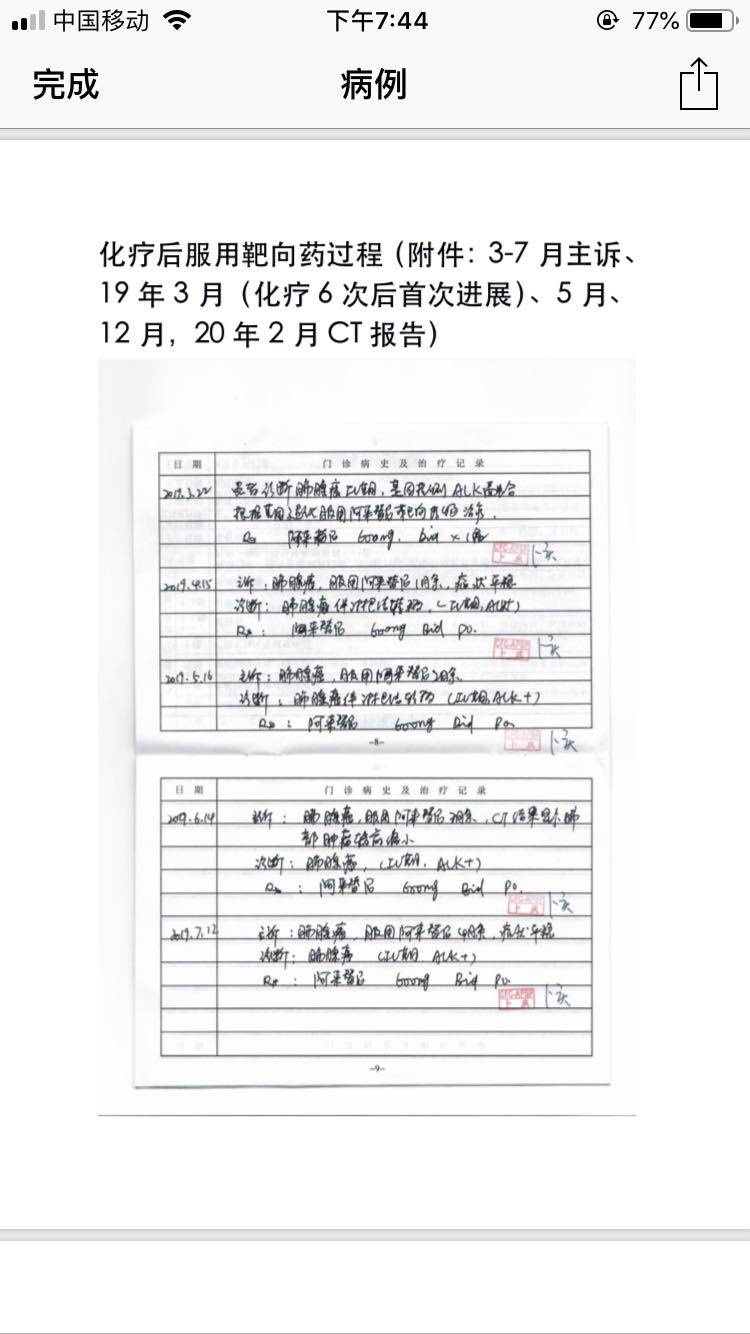 中国移动 下午7:44 77%
完成 病例
化疗后服用靶向药过程（附件：3-7 月主诉、
19 年 3 月（化疗 6 次后首次进展）、5 月、
12 月，20 年 2 月 CT 报告）
日 期 门 诊 病 史 及 治 疗 记 录
诊断肺腺癌IV期，基因 ALK
服用阿来替尼 治疗.
阿来替尼 600mg. Bid
2019.4.15 主诉：肺腺癌，服用阿来替尼1月余，症状平稳
诊断：肺腺癌伴淋巴结转移，（IV期，ALK+）
阿来替尼 600mg Bid po.
2019.5.16 主诉：肺腺癌，服用阿来替尼2月余
诊断：肺腺癌伴淋巴结转移（IV期，ALK+）
阿来替尼 600mg Bid po.
-8-
日 期 门 诊 病 史 及 治 疗 记 录
2019.6.14 主诉：肺腺癌，服用阿来替尼3月余，CT结果显示肺
部肿瘤 缩小
诊断：肺腺癌，（IV期，ALK+）
阿来替尼 600mg Bid po.
2019.7.12 主诉：肺腺癌，服用阿来替尼4月余，症状平稳
诊断：肺腺癌 （IV期，ALK+）
阿来替尼 600mg Bid po.
-9-